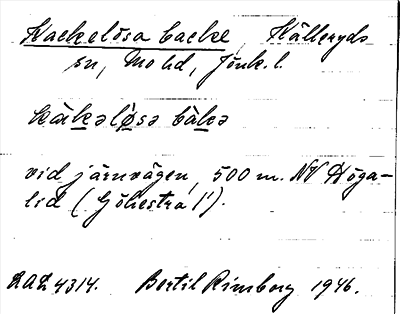 Kackelösa backe, Källeryds
sn, Mo hd, Jönk. l.
kàkəlø̀sə bàkə
vid järnvägen, 500 m. NV Höga-
lid (Göhestra 1¹).
ULMA 4314. Bertil Rimborg 1946.